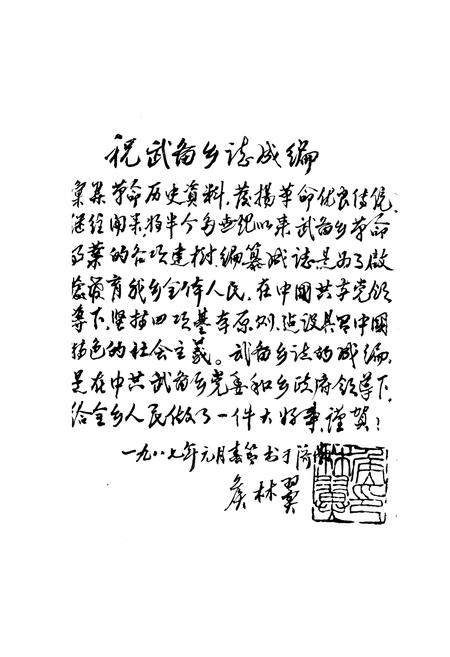 祝武备乡志成编
汇集革命历史资料,发扬革命优良传统,
继往开来将半个多世纪以来武备乡革命
事业的各项建树,编纂成志是为了启
蒙教育我乡全体人民,在中国共产党领
导下,坚持四项基本原则,建设具有中國
特色的社会主义。武备乡志的成编,
是在中共武备乡党委和乡政府领导下,
给全乡人民做了一件大好事,謹賀!
一九八七年元月春节书于济
侯林翼